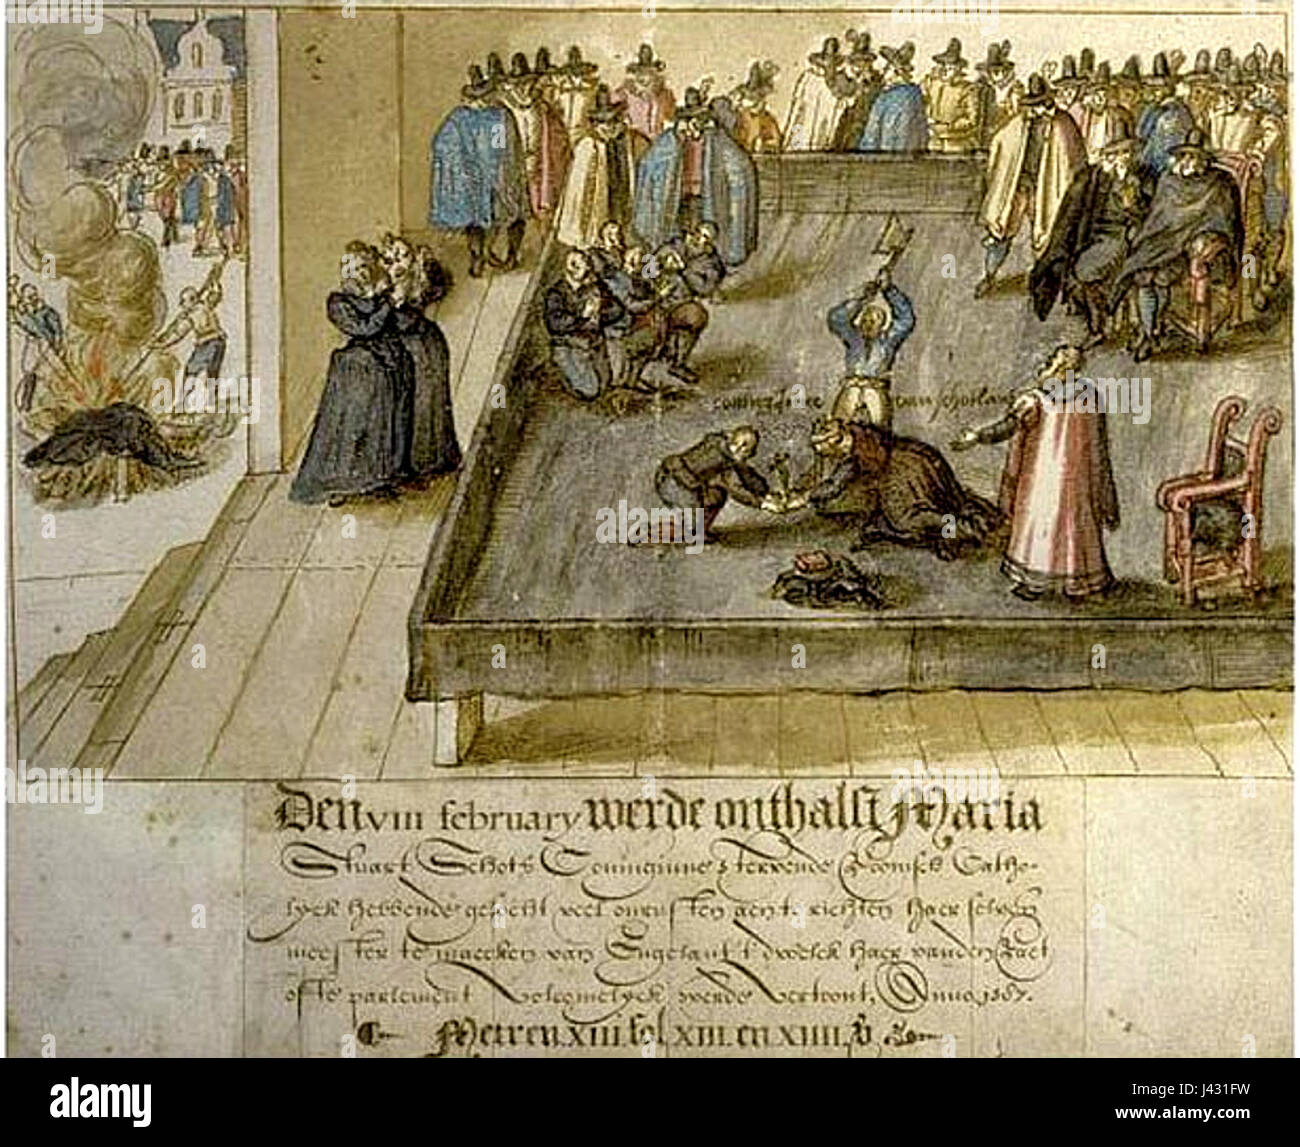 coninginne van schotland
Den VIII february werde onthalst Maria
Stuart Schots Coninginne, stervende Romsch Catho-
lyck hebbende gesocht veel onrusten aen te richten haer selven
meester te maecken van Engelant, t'dwelck haer vanden Raet
ofte parlement Volcomelyck werde Vertoont, Anno 1587.
Metren XIII. fol XIII. en XIIII.
alamy
Image ID: J431FW
www.alamy.com